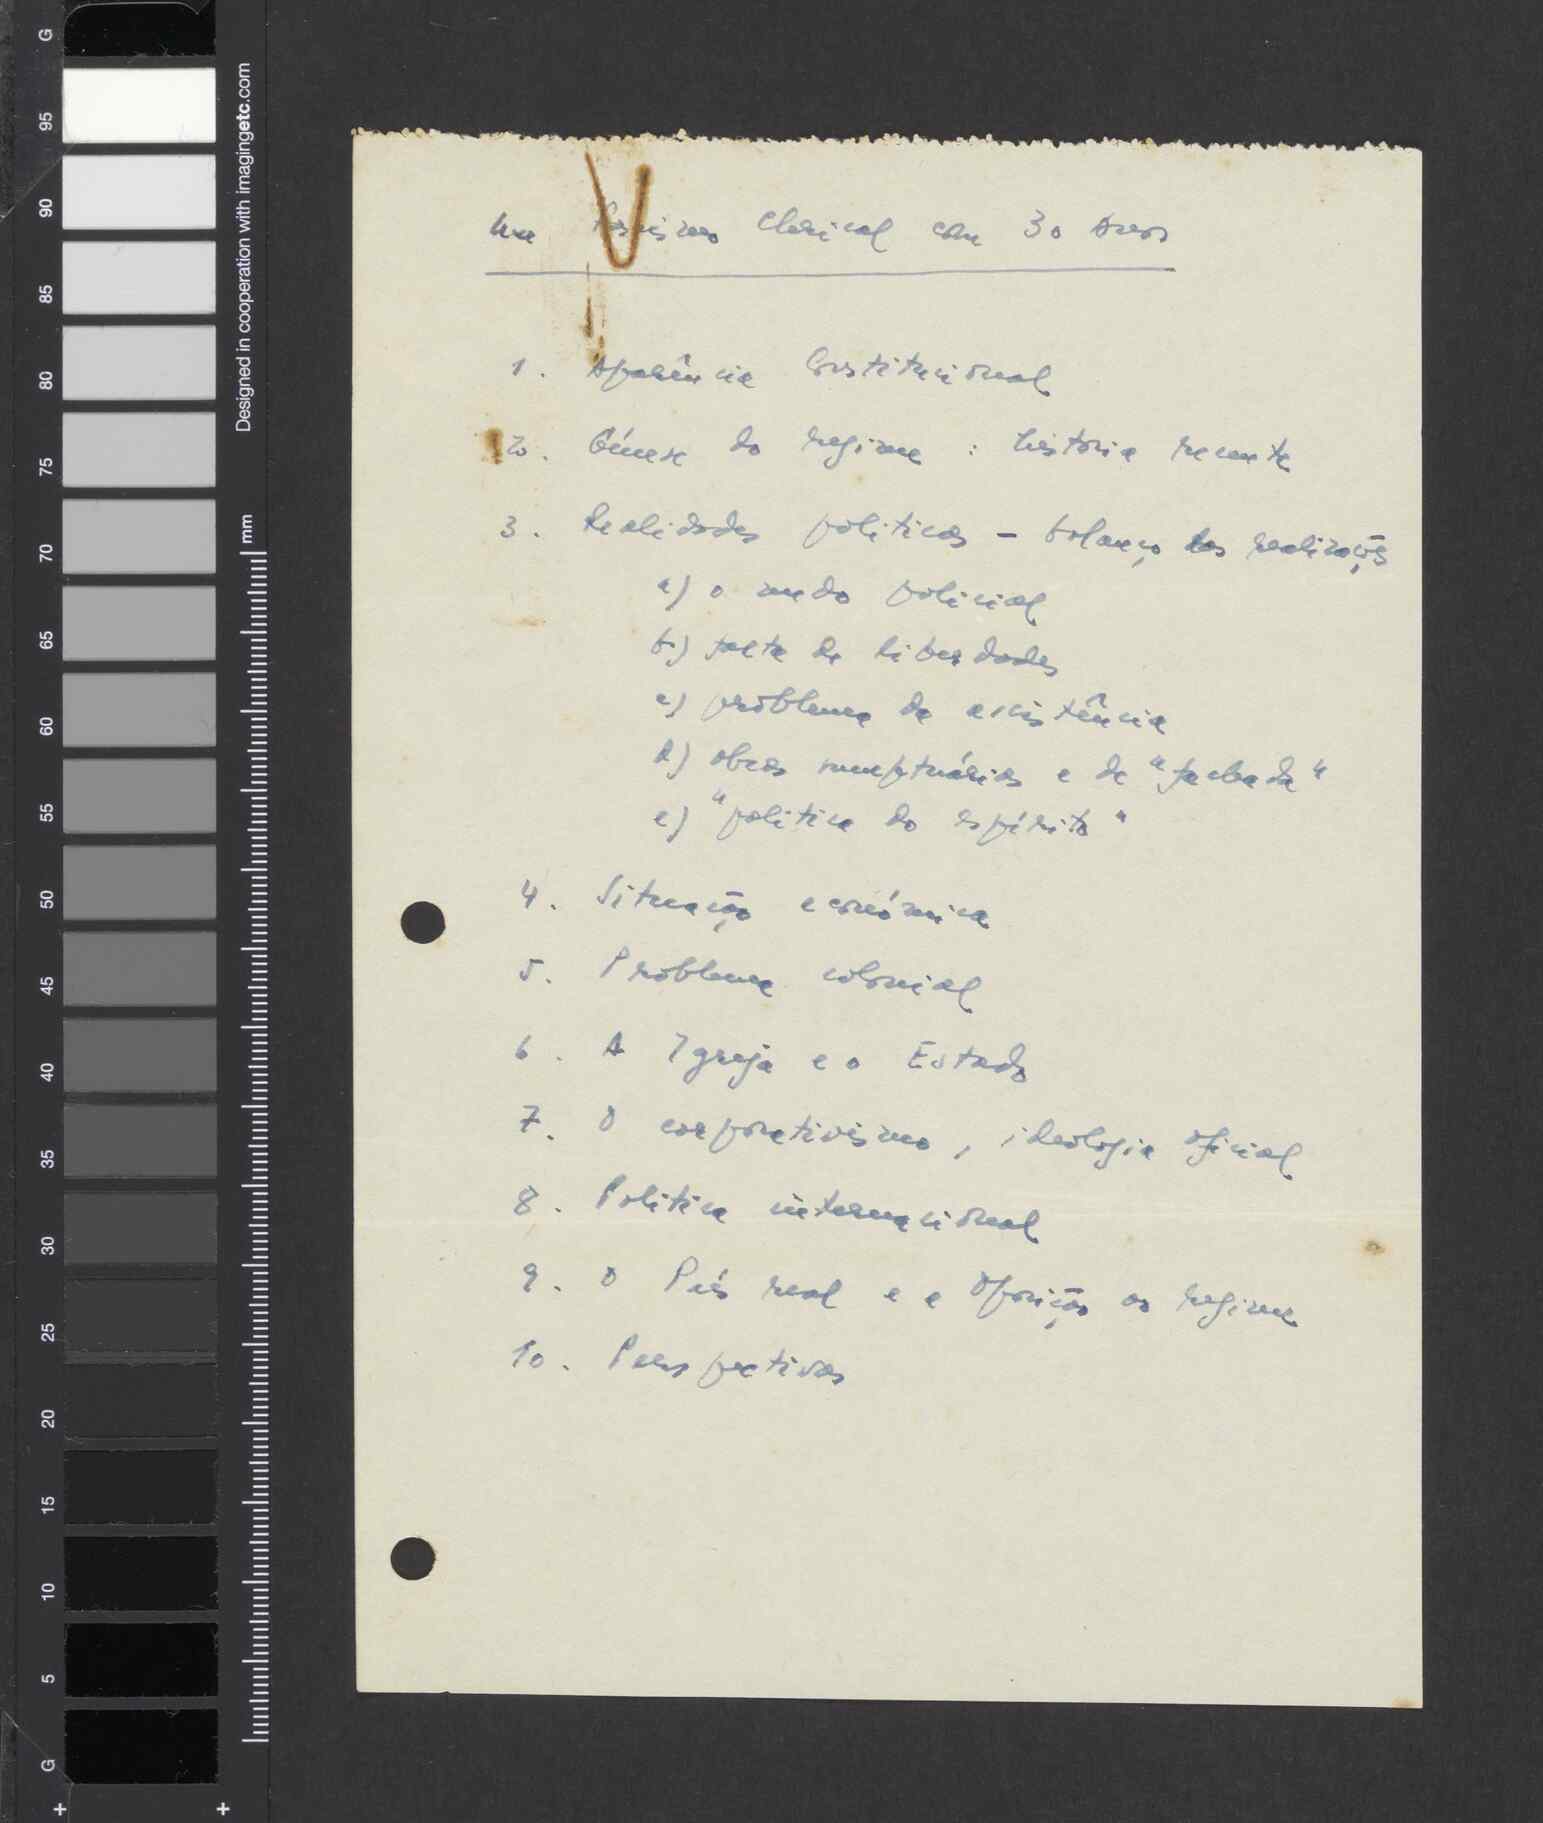 Um Fascismo Clerical com 30 Anos
1. Aparência Constitucional
2. Génese do regime : história recente
3. Realidades políticas – balanço das realizações
a) o medo policial
b) falta de liberdades
c) problema da assistência
d) obras sumptuárias e de "fachada"
e) "política do espírito"
4. Situação económica
5. Problema colonial
6. A Igreja e o Estado
7. O corporativismo, ideologia oficial
8. Política internacional
9. O País real e a Oposição ao regime
10. Perspectivas
Designed in cooperation with imagingetc.com
mm
G
95
90
85
80
75
70
65
60
55
50
45
40
35
30
25
20
15
10
5
G